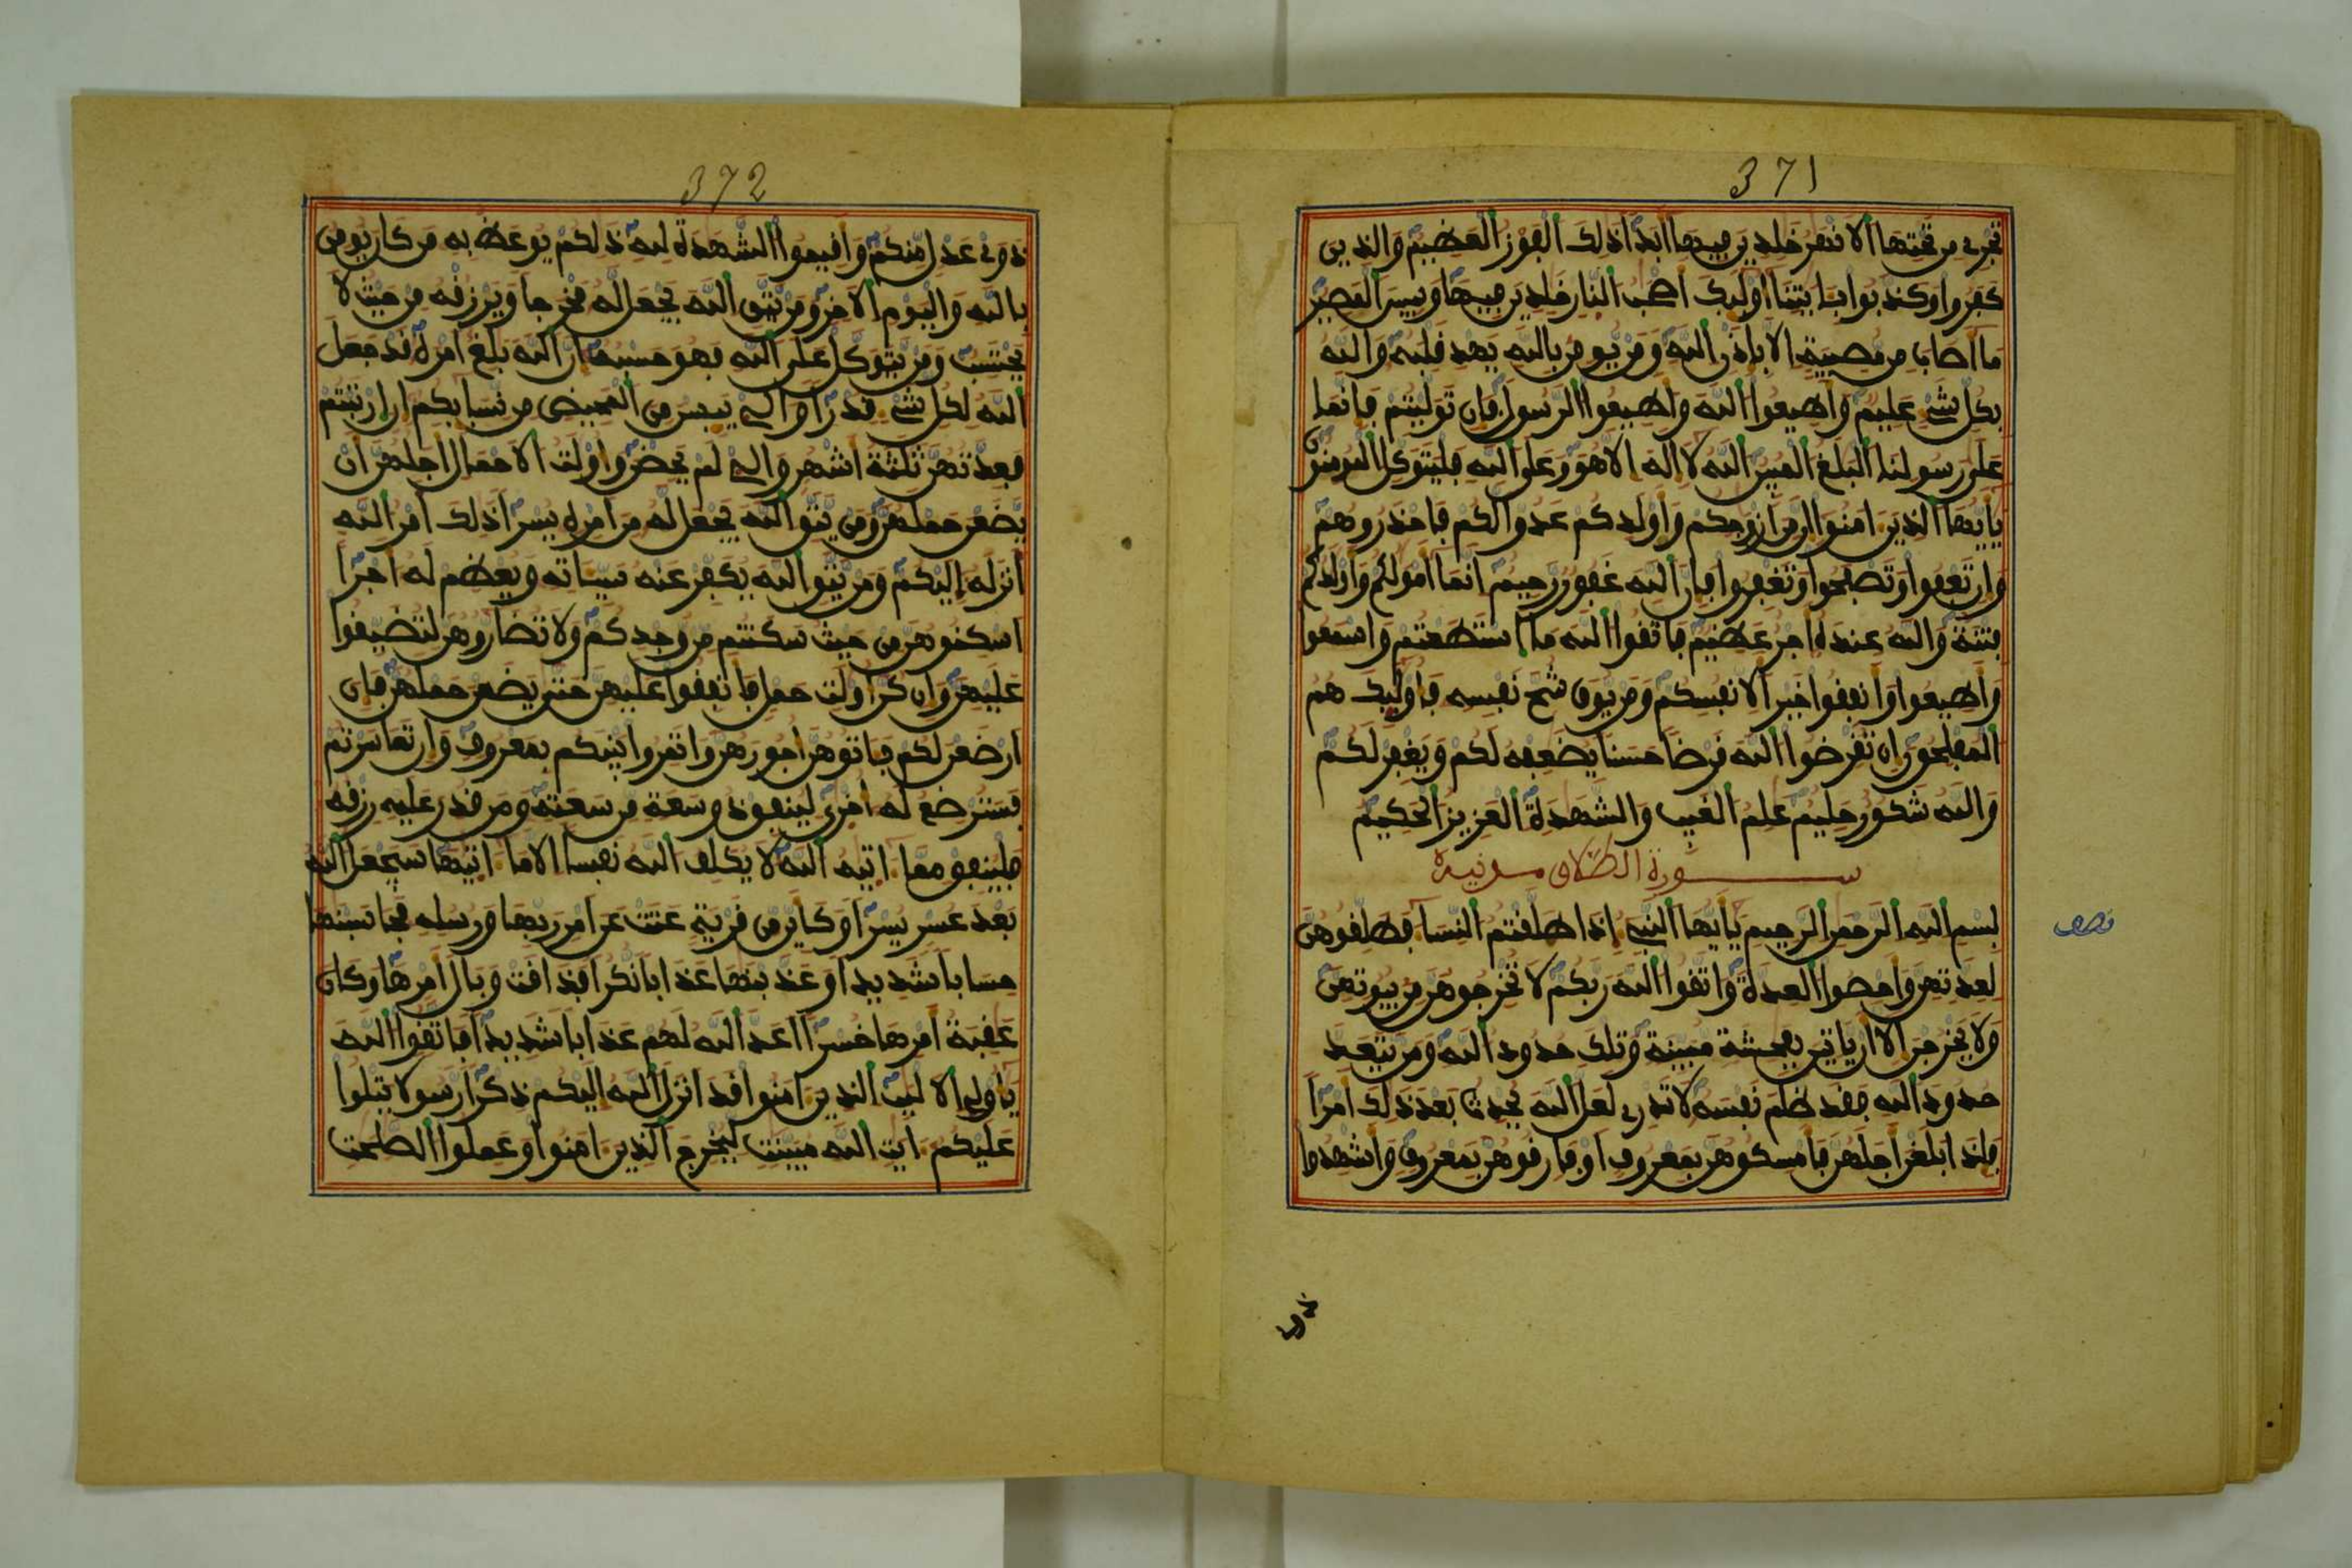 371
تجرے من تحتها الانهر خلدين فيها ابدا ذلك الفوز العظيم والذين
كفروا وكذبوا بـايتنا اوليك اصحب النار خلدين فيها وبيس المصير
ما اصاب من مصيبة الا باذن الله ومن يومن بالله يهد قلبه والله
بكل شے عليم واطيعوا الله واطيعوا الرسول فان توليتم فانما
على رسولنا البلغ المبين الله لا اله الا هو وعلى الله فليتوكل المومنون
يايها الذين امنوا ان من ازوجكم واولدكم عدوا لكم فاحذروهم
وان تعفوا وتصفحوا وتغفروا فان الله غفور رحيم انما امولكم واولدكم
فتنة والله عنده اجر عظيم فاتقوا الله ما استطعتم واسمعوا
واطيعوا وانفقوا خيرا لانفسكم ومن يوق شح نفسه فاوليك هم
المفلحون ان تقرضوا الله قرضا حسنا يضعفه لكم ويغفر لكم
والله شكور حليم علم الغيب والشهدة العزيز الحكيم
سورة الطلاق مدنية
بسم الله الرحمن الرحيم يايها النبے إذا طلقتم النسا فطلقوهن
نصف
لعدتهن واحصوا العدة واتقوا الله ربكم لا تخرجوهن من بيوتهن
ولا يخرجن الا ان ياتين بفحشة مبينة وتلك حدود الله ومن يتعد
حدود الله فقد ظلم نفسه لا تدرے لعل الله يحدث بعد ذلك امرا
فاذا بلغن اجلهن فامسكوهن بمعروف او فارقوهن بمعروف واشهدوا
ذوے
372
ذوے عدل منكم واقيموا الشهدة لله ذلكم يوعظ به من كان يومن
بالله واليوم الاخر ومن يتق الله يجعل له مخرجا ويرزقه من حيث لا
يحتسب ومن يتوكل على الله فهو حسبه ان الله بلغ امره قد جعل
الله لكل شے قدرا والے ييسن من المحيض من نسايكم ان ارتبتم
فعدتهن ثلثة اشهر والے لم يحضن واولت الاحمال اجلهن ان
يضعن حملهن ومن يتق الله يجعل له من امره يسرا ذلك امر الله
انزله إليكم ومن يتق الله يكفر عنه سيياته ويعظم له اجرا
اسكنوهن من حيث سكنتم من وجدكم ولا تضاروهن لتضيقوا
عليهن وان كن اولت حمل فانفقوا عليهن حتى يضعن حملهن فان
ارضعن لكم فـاتوهن اجورهن واتمروا بينكم بمعروف وان تعاسرتم
فسترضع له اخرى لينفق ذو سعة من سعته ومن قدر عليه رزقه
فلينفق مما اتيه الله لا يكلف الله نفسا الا ما اتيها سيجعل الله
بعد عسر يسرا وكاين من قرية عتت عن امر ربها ورسله فحاسبنها
حسابا شديدا وعذبنها عذابا نكرا فذاقت وبال امرها وكان
عقبة امرها خسرا اعد الله لهم عذابا شديدا فاتقوا الله
ياولے الالبب الذين امنوا قد انزل الله اليكم ذكرا رسولا يتلوا
عليكم ايت الله مبينت ليخرج الذين امنوا وعملوا الصلحت